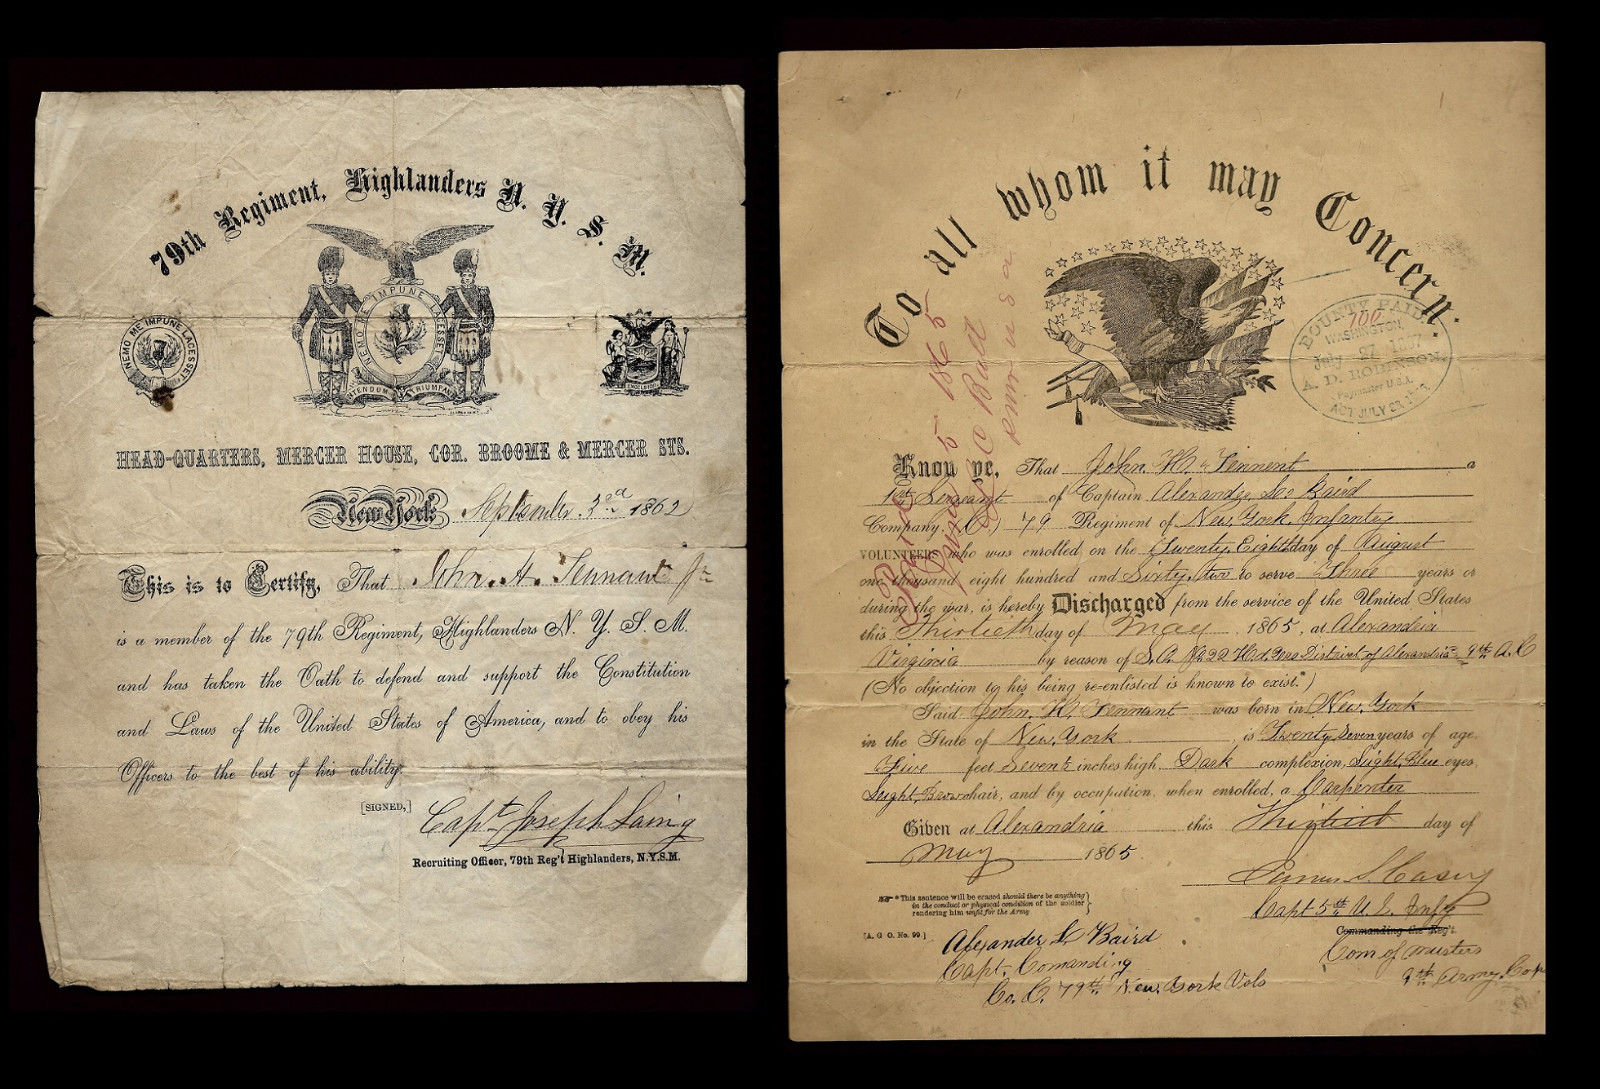 79th Regiment, Highlanders N. Y. S. M.
NEMO ME IMPUNE LACESSET
NEMO ME IMPUNE LACESSET
HEAD-QUARTERS, MERCER HOUSE, COR. BROOME & MERCER STS.
New York, September 3rd 1862
This is to Certify, That John H. Tennant Jr
is a member of the 79th Regiment, Highlanders N. Y. S. M.
and has taken the Oath to defend and support the Constitution
and Laws of the United States of America, and to obey his
Officers to the best of his ability.
[SIGNED,]
Capt. Joseph Laing
Recruiting Officer, 79th Reg't Highlanders, N.Y.S.M.
To all whom it may Concern.
BOUNTY PAID
100
WASHINGTON,
July 27 1867
A. D. ROBINSON,
Paymaster U.S.A.
ACT JULY 28, 1866
Know ye, That John H. Tennent a
1st Sergeant of Captain Alexander Baird
Company (C,) 79 Regiment of New York Infantry
VOLUNTEERS who was enrolled on the Twenty Eighth day of August
one thousand eight hundred and Sixty two to serve Three years or
during the war, is hereby Discharged from the service of the United States
this Thirtieth day of May, 1865, at Alexandria
Virginia by reason of S.O. No 22 Hd. Qrs District of Alexandria 9th A. C
(No objection to his being re-enlisted is known to exist.*)
Said John. H. Tennant was born in New York
in the State of New York, is Twenty Seven years of age,
Five feet Seven ½ inches high, Dark complexion, Light Blue eyes,
Light Brown hair, and by occupation, when enrolled, a Carpenter
Given at Alexandria this Thirtieth day of
May 1865.
James S. Casey
Capt 5th U. S. Infy
Commanding the Reg't.
Com of Musters
9th Army. Corp
*This sentence will be erased should there be anything
in the conduct or physical condition of the soldier
rendering him unfit for the Army.
[A. G. O. No. 99.]
Alexander L Baird
Capt. Comanding
Co. C. 79th New York Vols